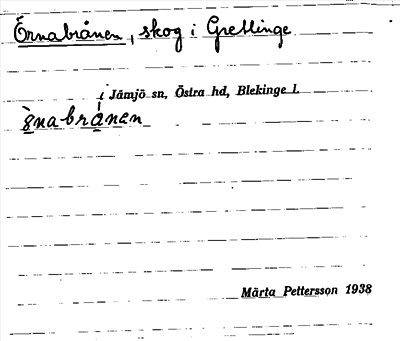 Örnabrånen, skog i Gretlinge
i Jämjö sn, Östra hd, Blekinge l.
Märta Pettersson 1938